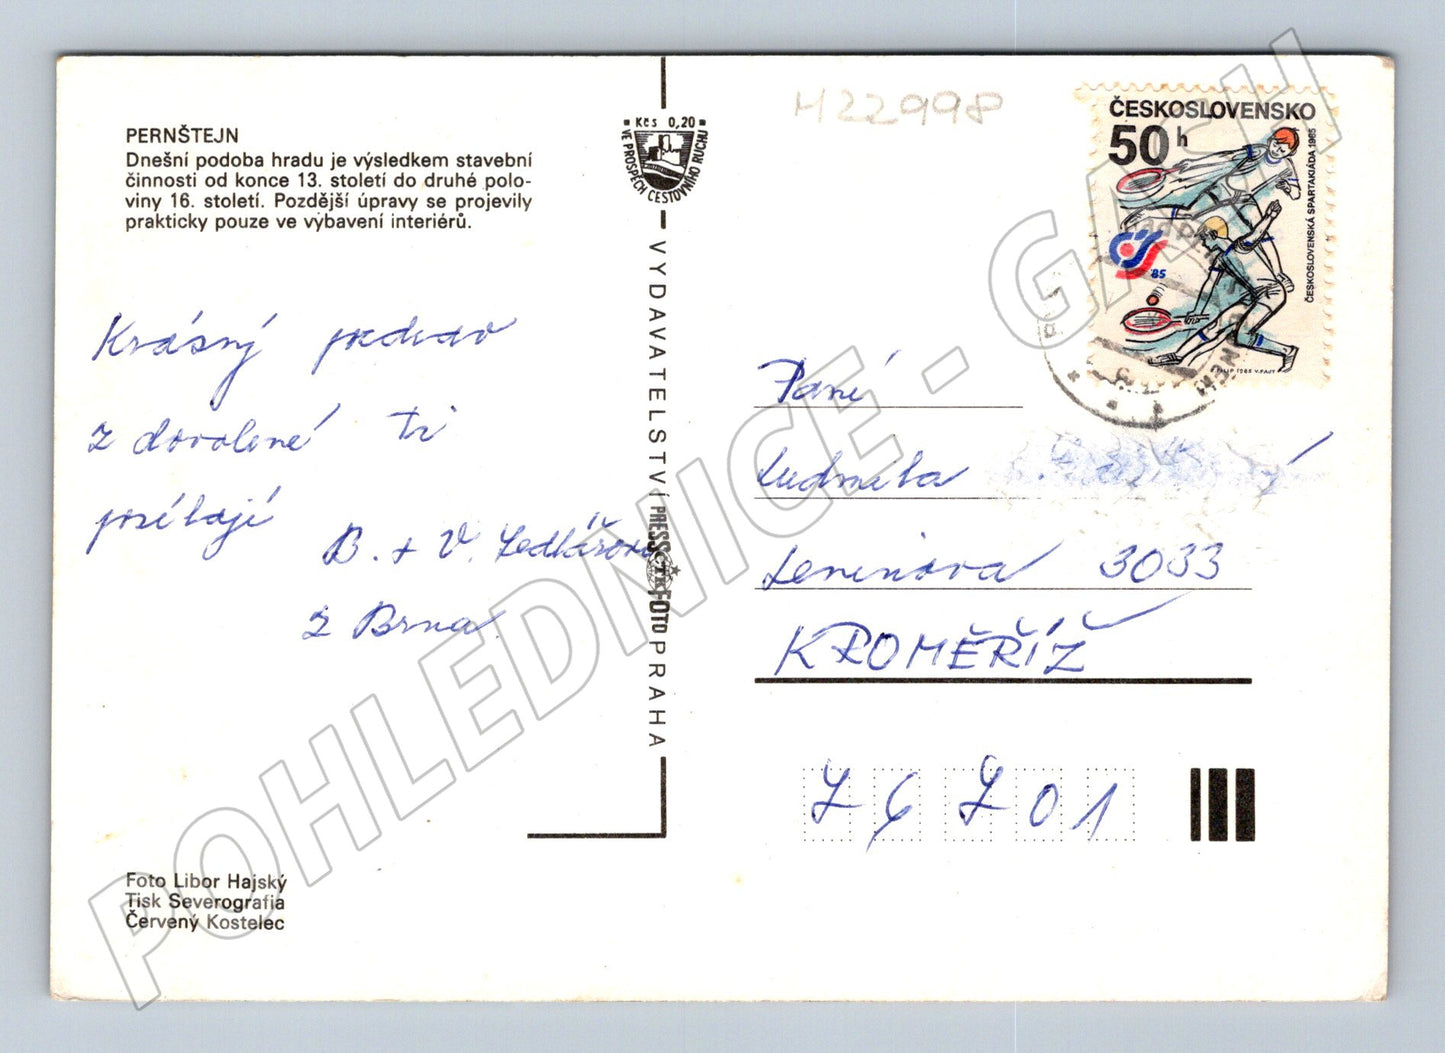 PERNŠTEJN
Dnešní podoba hradu je výsledkem stavební
činnosti od konce 13. století do druhé polo-
viny 16. století. Pozdější úpravy se projevily
prakticky pouze ve vybavení interiérů.
Krásný pozdrav
z dovolené Ti
posílají
B. + V. Sedlářovi
z Brna
Foto Libor Hajský
Tisk Severografia
Červený Kostelec
Kčs 0,20
VE PROSPĚCH CESTOVNÍHO RUCHU
VYDAVATELSTVÍ PRESSFOTO PRAHA
ČTK
M22998
ČESKOSLOVENSKO
50 h
ČESKOSLOVENSKÁ SPARTAKIÁDA 1985
'85
Paní
Ludmila
Leninova 3033
KROMĚŘÍŽ
76701
POHLEDNICE - GACH